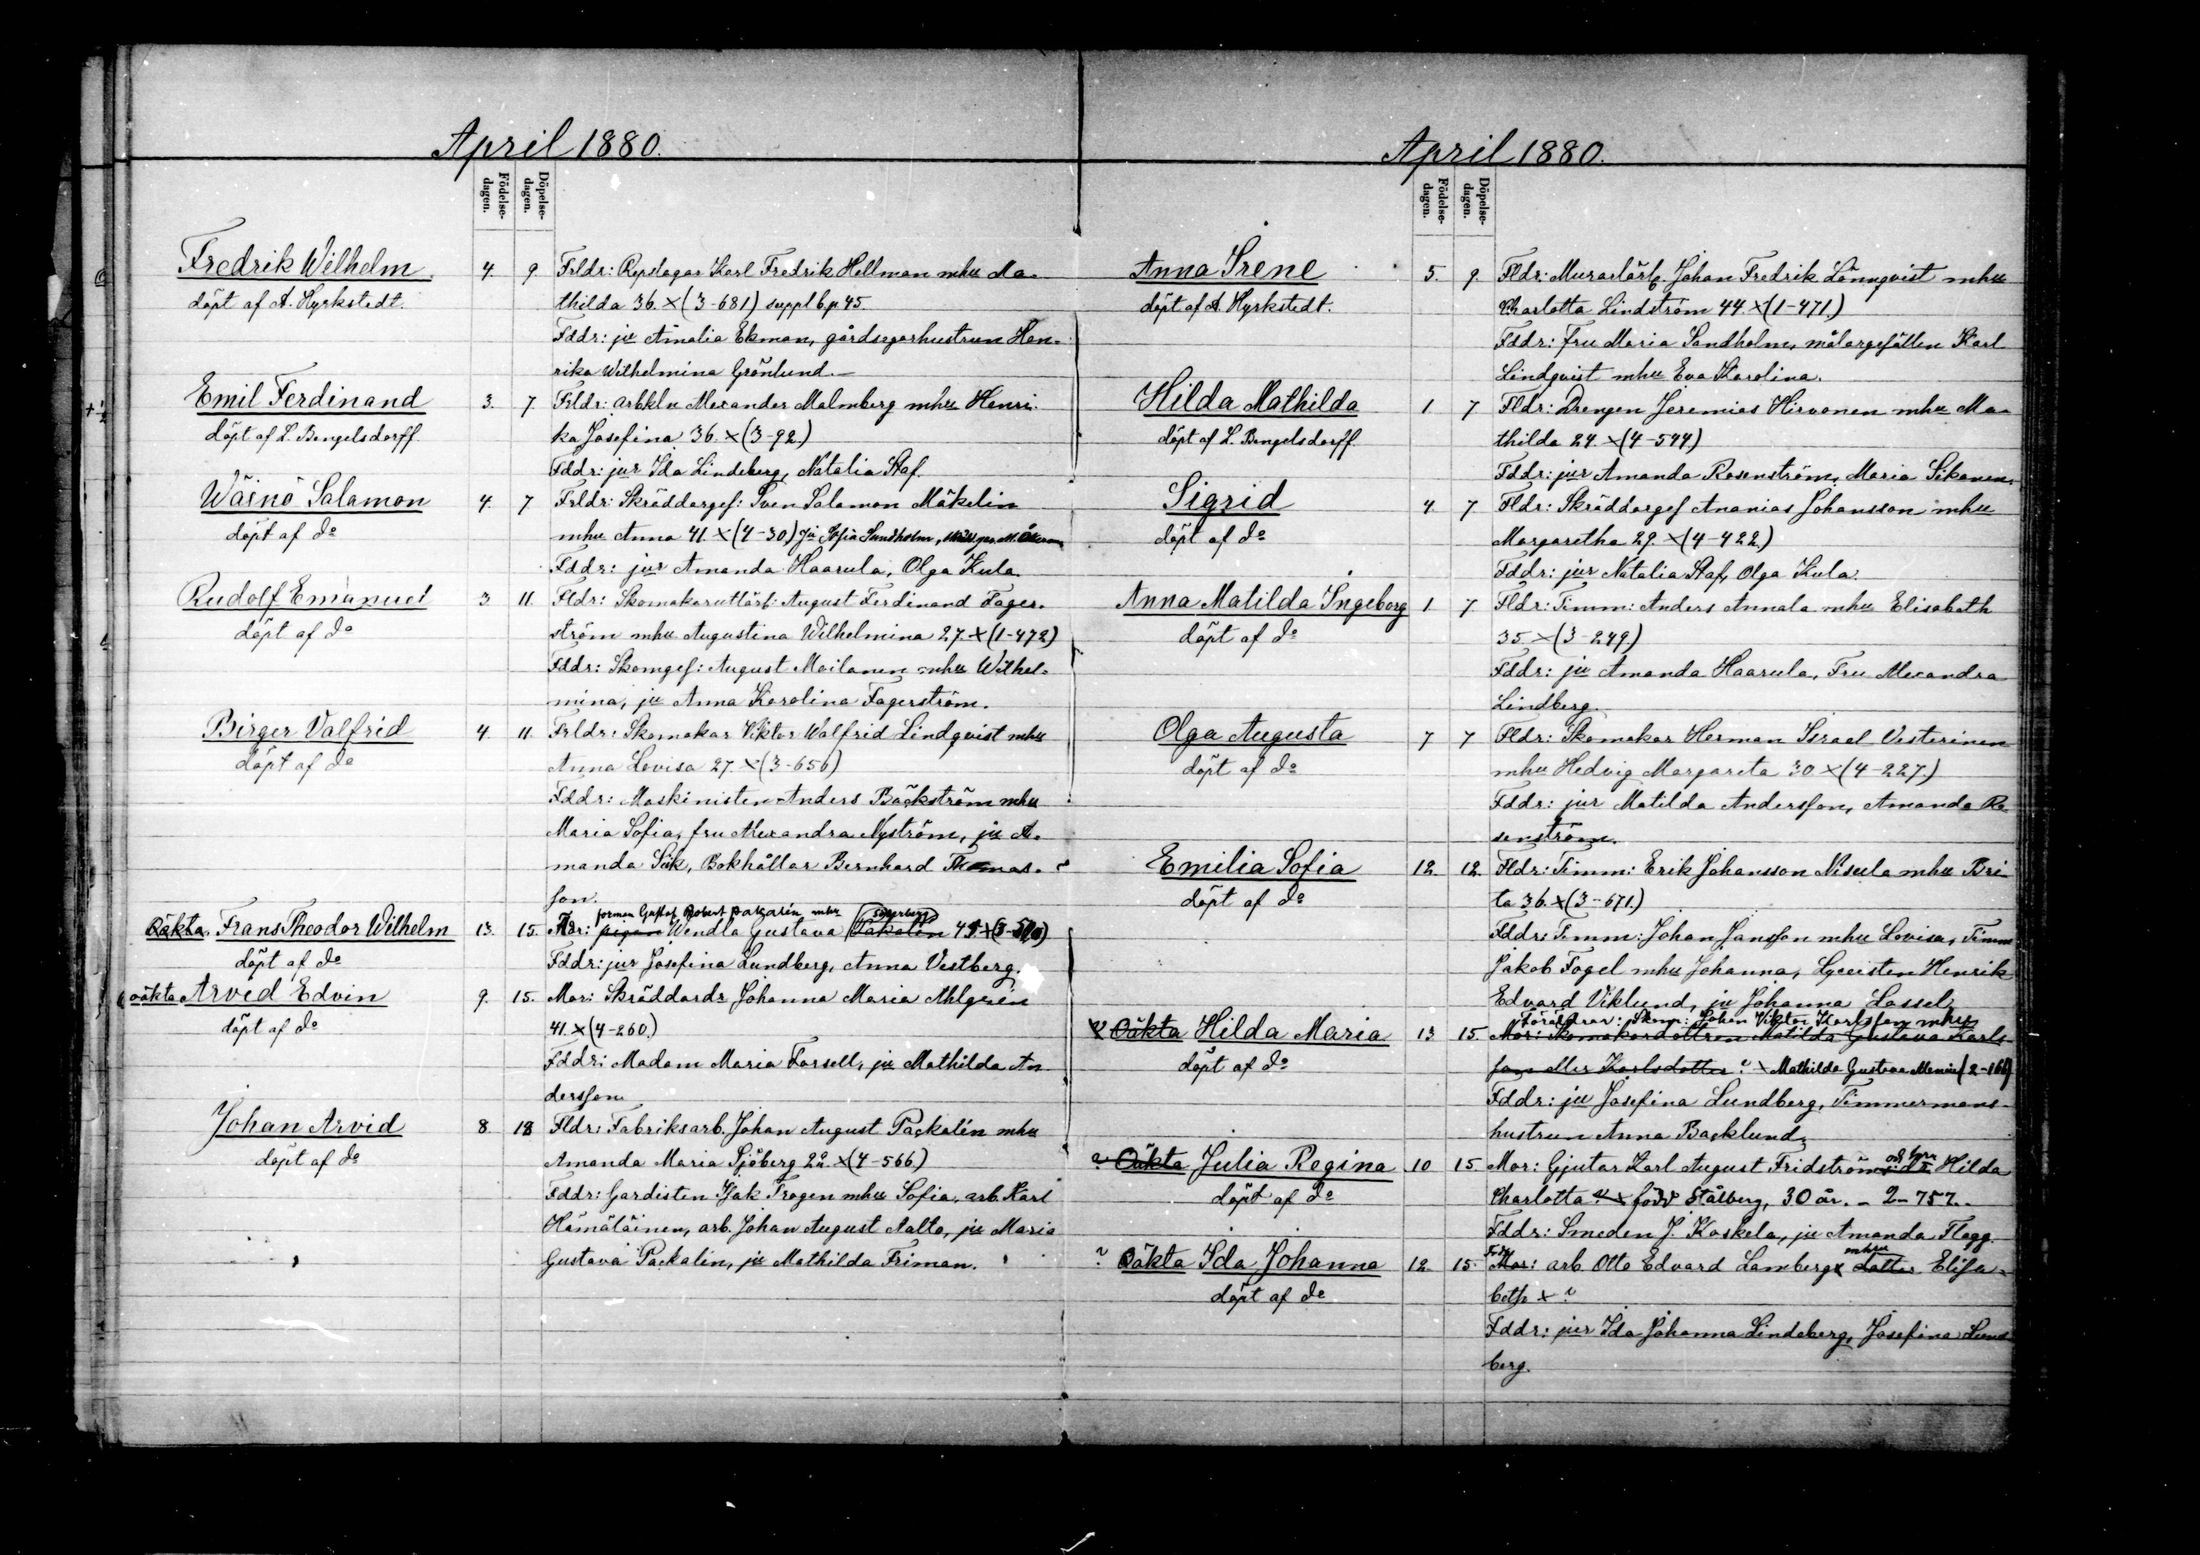 April 1880.
Födelse-
dagen.
Döpelse-
dagen.
Fredrik Wilhelm 4. 9. Frldr: Repslagar Karl Fredrik Hellman mhu Ma-
döpt af A. Hyrkstedt. thilda 36. × (3-681) suppl b p. 45.
Fddr: ju Amalia Ekman, gårdsegarhustrun Hen-
rika Wilhelmina Grönlund.
Emil Ferdinand 3. 7. Frldr: arbkln Alexander Malmberg mhu Henri-
döpt af L. Bengelsdorff. ka Josefina 36. × (3-92.)
Fddr: jur Ida Lindeberg, Natalia Staf.
Wäinö Salamon 4. 7 Frldr: Skräddargef: Sven Salamon Mäkelin
döpt af do mhu Anna 41. × (4-30) ju Sofia Sundholm,
Fddr: jur Amanda Haarula, Olga Kula.
Rudolf Emanuel 3 11. Fldr: Skomakareutlärl: August Ferdinand Fager-
döpt af do ström mhu Augustina Wilhelmina 27. × (1-472)
Fddr: Skomgef: August Moilanen mhu Wilhel-
mina, ju Anna Karolina Fagerström.
Birger Valfrid 4. 11. Frldr: Skomakar Viktor Walfrid Lindqvist mhu
döpt af do Anna Lovisa 27. × (3-656)
Fddr: Maskinisten Anders Bäckström mhu
Maria Sofia, fru Alexandra Nyström, ju A-
manda Sük, Bokhållar Bernhard Thomas-
son.
forman Gustaf Robert Pakalén mhu Söderberg
Oäkta Frans Theodor Wilhelm 13. 15. Mor: pigan Wendla Gustava Pakalén 45. ×
döpt af do Fddr: jur Josefina Lundberg, Anna Vestberg.
oäkta Arved Edvin 9. 15. Mor: Skräddardr Johanna Maria Ahlgren
döpt af do 41. × (4-260.)
Fddr: Madam Maria Forsell, ju Mathilda An-
dersson
Johan Arvid 8. 18 Fldr: Fabriksarb. Johan August Packalén mhu
döpt af do Amanda Maria Sjöberg 22. × (4-566.)
Fddr: Gardisten Isak Trogen mhu Sofia, arb. Karl
Hämäläinen, arb. Johan August Aalto, ju Maria
Gustava Packalén, ju Mathilda Friman.
April 1880.
Födelse-
dagen.
Döpelse-
dagen.
Anna Irene 5. 9. Fldr: Murarlärl, Johan Fredrik Lönnqvist mhu
döpt af A. Hyrkstedt. Charlotta Lindström 44. × (1-471.)
Fddr: fru Maria Sandholm, målargesällen Karl
Lindqvist mhu Eva Karolina.
Hilda Mathilda 1 7 Fldr: Drengen Jeremias Hirvonen mhu Ma-
döpt af L. Bengelsdorff. thilda 24. × (4-544)
Fddr: jur Amanda Rosenström, Maria Sikanen.
Sigrid 4. 7 Fldr: Skräddargef Ananias Johansson mhu
döpt af do Margaretha 29. × (4-422.)
Fddr: jur Natalia Staf, Olga Kula.
Anna Matilda Ingeborg 1 7 Fldr: Timm: Anders Annala mhu Elisabeth
döpt af do 35. × (3-249.)
Fddr: ju Amanda Haarula, Fru Alexandra
Lindberg.
Olga Augusta 7 7 Fldr: Skomakar Herman Israel Vesterinen
döpt af do mhu Hedvig Margareta 30 × (4-227.)
Fddr: jur Matilda Andersson, Amanda Ro
senström.
Emilia Sofia 12. 12. Fldr: Timm: Erik Johansson Nisula mhu Bri
döpt af do ta 36. × (3-671.)
Fddr: Timm: Johan Jansson mhu Lovisa, Timm
Jakob Fogel mhu Johanna, Lyceisten Henrik
Edvard Viklund, ju Johanna Lassel
Föräldrar: Skom: Johan Viktor Karlsson mhu
Oäkta Hilda Maria 13 15. Mor: Skomakardottren Matilda Gustava Karls-
döpt af do son eller Karlsdotter ? × Mathilda Gustava
Fddr: ju Josefina Lundberg, Timmermans-
hustrun Anna Backlund.
Oäkta Julia Regina 10 15. Mor: Gjutar Karl August Fridström Hilda
döpt af do Charlotta född Stålberg, 30 år. - 2-757.
Fddr: Smeden J. Koskela, ju Amanda Flagg.
mhu
? Oäkta Ida Johanna 12. 15. Mor: arb. Otto Edvard Lamberg dotter Elisa-
döpt af do beth × ?
Fddr: jur Ida Johanna Lindeberg, Josefina Lund
berg.